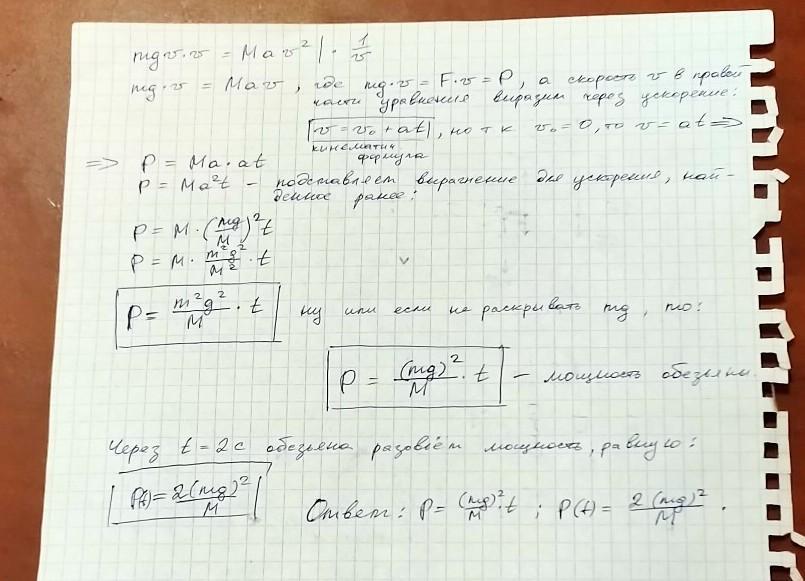 mgv·v = Mav² | · 1/v
mg·v = Mav, где mg·v = F·v = P, а скорость v в правой
части уравнения выразим через ускорение:
v = v₀ + at, но т к v₀ = 0, то v = at ⇒
кинематич
формула
⇒ P = Ma·at
P = Ma²t – подставляем выражение для ускорения, най-
денное ранее:
P = M · (mg/M)² t
P = M · m²g²/M² · t
P = m²g²/M · t ну или если не раскрывать mg, то:
P = (mg)²/M · t – мощность обезьяны.
Через t = 2с обезьяна разовьём мощность, равную:
P(t) = 2(mg)²/M
Ответ: P = (mg)²/M · t ; P(t) = 2(mg)²/M .